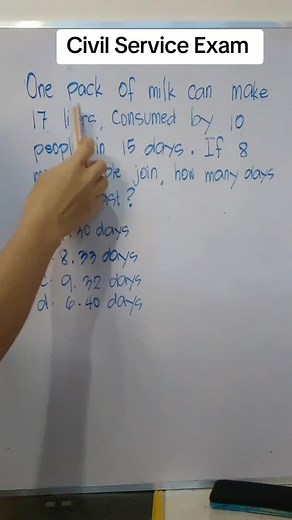 Civil Service Exam
One pack of milk can make
17 consumed by 10
in 15 days. If 8
join, how many days
?
30 days
8.33 days
c. 9.32 days
d. 6.40 days